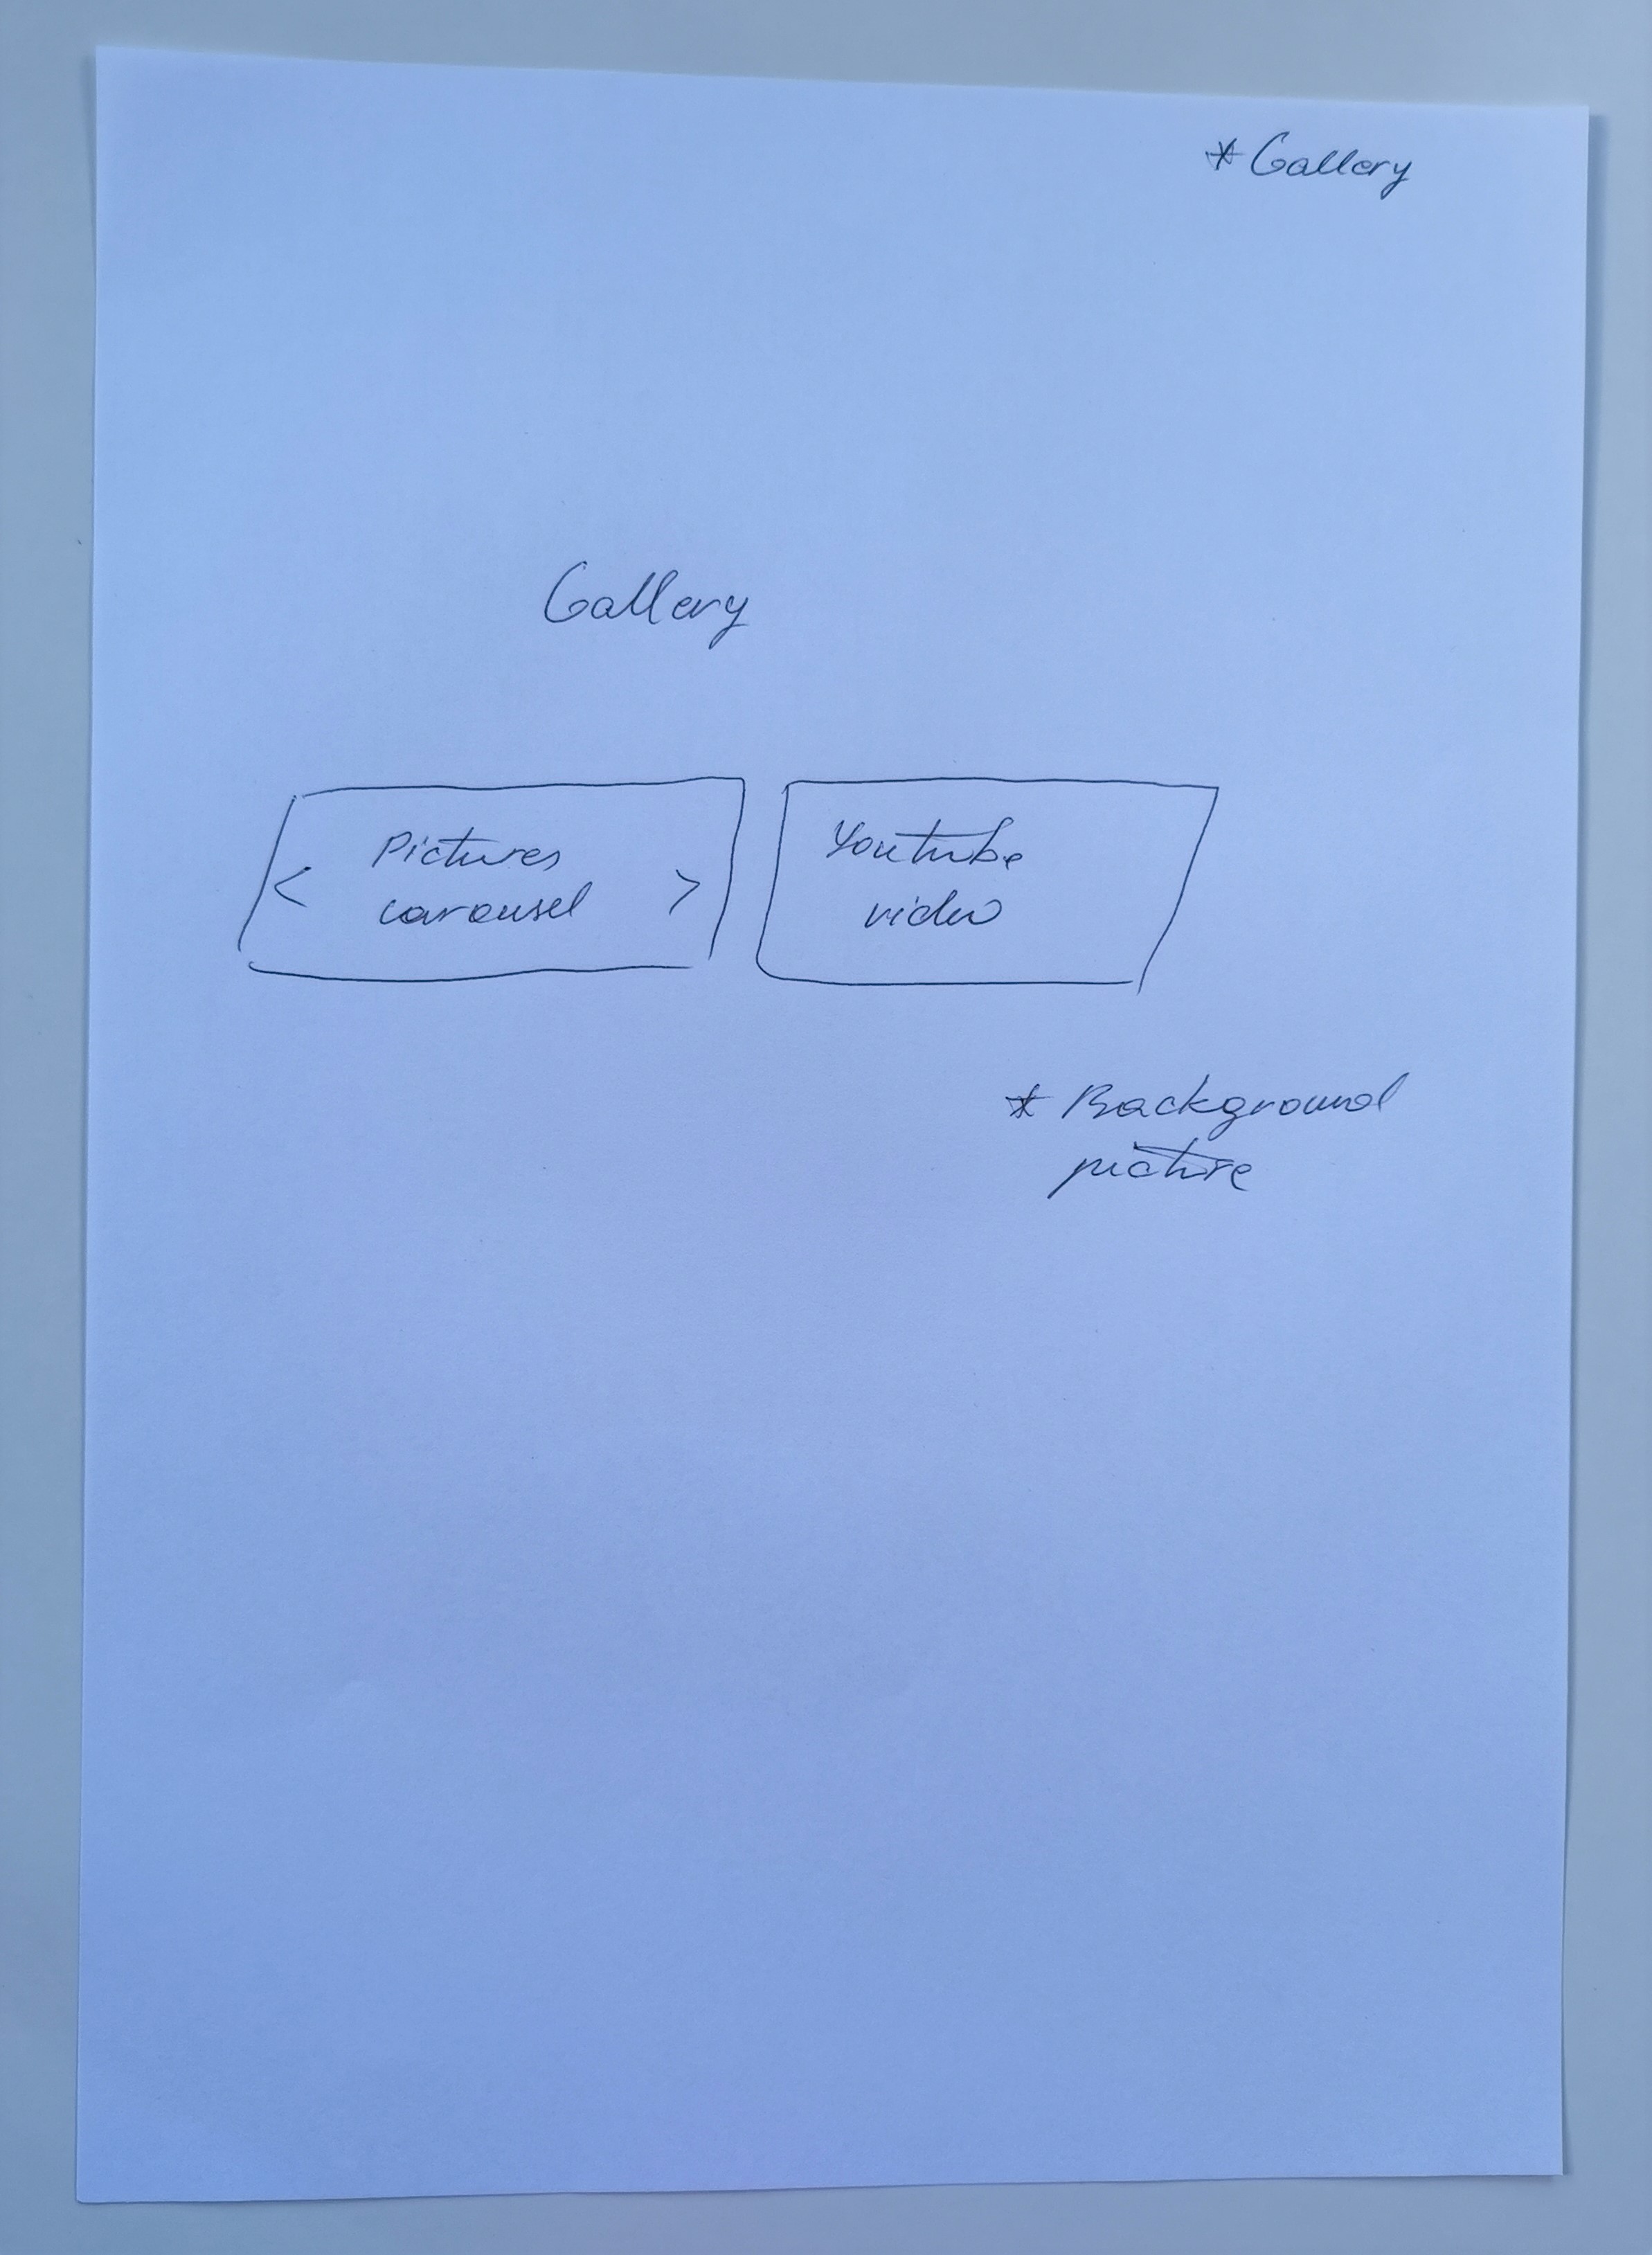 * Gallery
Gallery
< Pictures >
carousel
Youtube
video
* Background
picture